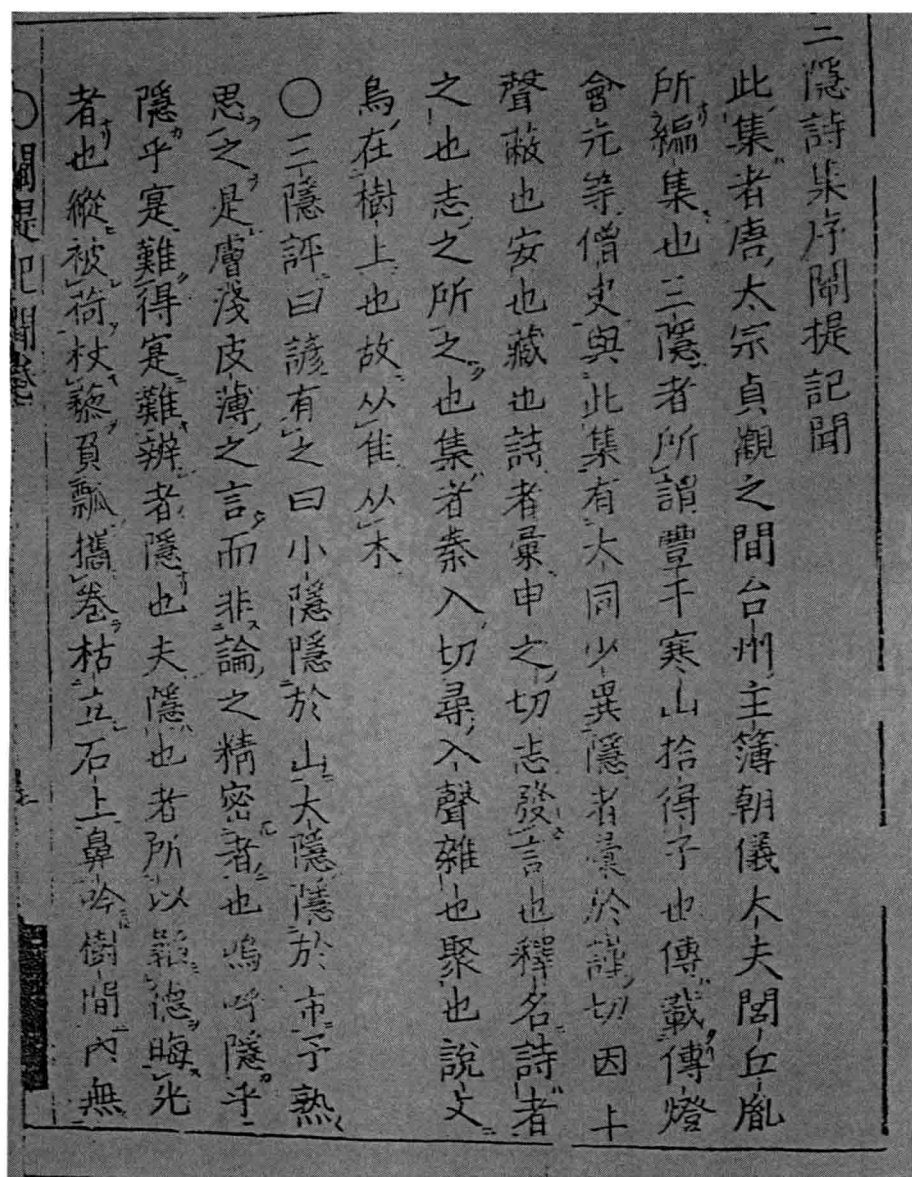 三隱詩集序闡提記聞
此集者唐太宗貞觀之間台州主簿朝儀大夫閭丘胤
所編集也三隱者所謂豐干寒山拾得子也傳載傳燈
會元等僧史與此集有大同少異隱者彙於謹切因上
聲蔽也安也藏也詩者彙申之切志發言也釋名詩者
之也志之所之也集者秦入切尋入聲雜也聚也說文
鳥在樹上也故从隹从木
〇三隱評曰諺有之曰小隱隱於山大隱隱於市予熟
思之是膚淺皮薄之言而非論之精密者也嗚呼隱乎
隱乎寔難得寔難辨者隱也夫隱也者所以韜德晦光
者也縱被荷杖藜負瓢攜卷枯立石上鼻吟樹間內無